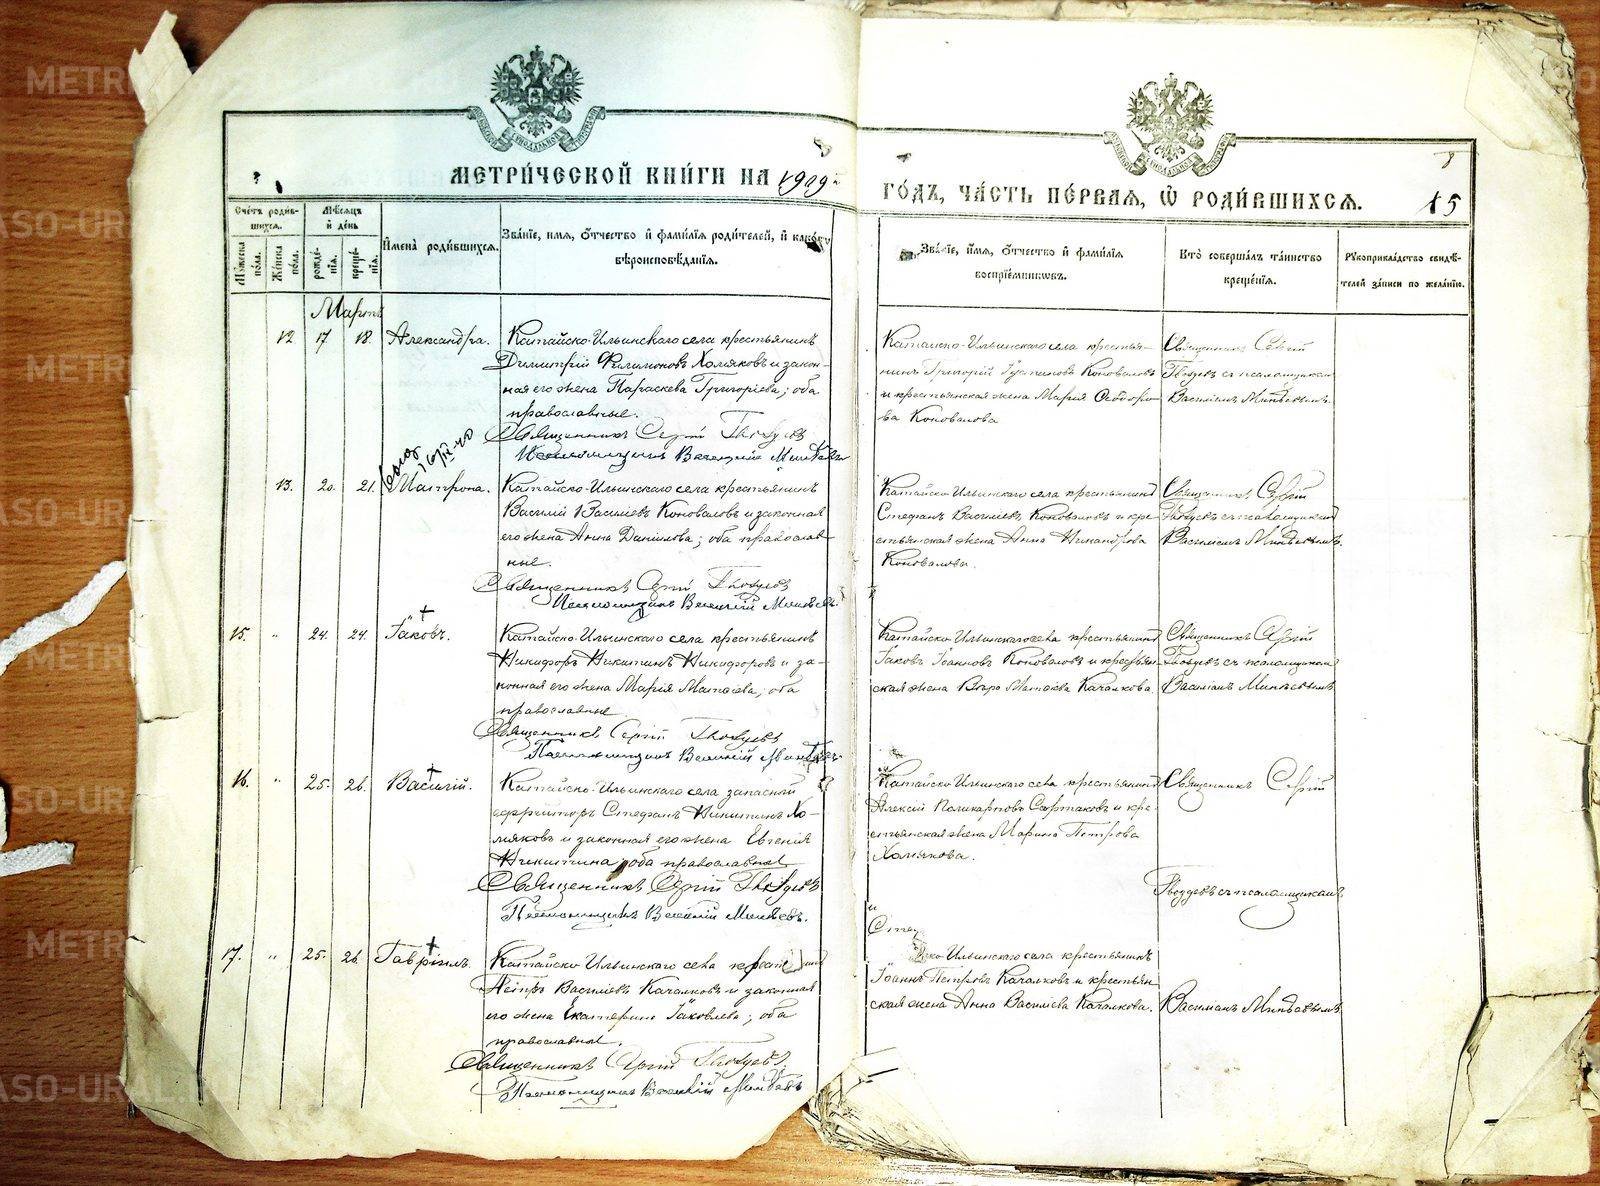 МЕТРИ́ЧЕСКОЙ КНИ́ГИ НА 1909
ГО́ДЪ, ЧА́СТЬ ПЕ́РВАЯ, Ѡ РОДИ́ВШИХСЯ.
15
Сче́тъ роди́в-
шихся.
Му́жеска по́ла.
Же́нска по́ла.
Мѣ́сяцъ
и҆ де́нь
рожде́нія.
креще́нія.
И҆мена̀ роди́вшихся.
Зва́нїе, и҆мя, ѻ҆тчество и҆ фами́лїя роди́телей, и҆ како́гѡ
вѣроисповѣ́данїя.
Зва́нїе, и҆мя, ѻ҆тчество и҆ фами́лїя
воспрїе́мниковъ.
Кто̀ соверша́лъ та́инство
креще́нїя.
Рукоприкла́дство свидѣ́-
телей за́писи по жела́нїю.
Мартъ
12. 17 18. Александра.
Катайско-Ильинскаго села крестьянинъ
Димитрій Филимоновъ Холяковъ и закон-
ная его жена Параскева Григоріева; оба
православные.
Священникъ Сергій Гвоздевъ
Псаломщикъ Василій
Катайско-Ильинскаго села крестья-
нинъ Григорій Коноваловъ
и крестьянская жена Марія Ѳеодоро-
ва Коновалова
Священникъ Сергій
Гвоздевъ съ псаломщикомъ
Василіемъ
13. 20. 21. Матрона.
Катайско-Ильинскаго села крестьянинъ
Василій Васильевъ Коноваловъ и законная
его жена Анна Данилова; оба православ-
ные.
Священникъ Сергій Гвоздевъ
Псаломщикъ Василій
Катайско-Ильинскаго села крестьянинъ
Стефанъ Васильевъ Коноваловъ и кре-
стьянская жена Анна Никандрова
Коновалова.
Священникъ Сергій
Гвоздевъ съ псаломщикомъ
Василіемъ
15. " 24. 24. Іаковъ.
Катайско-Ильинскаго села крестьянинъ
Никифоръ Никитинъ Никифоровъ и за-
конная его жена Марія Матѳіева, оба
православные
Священникъ Сергій Гвоздевъ
Псаломщикъ Василій
Катайско-Ильинскаго села крестьянинъ
Іаковъ Іоанновъ Коноваловъ и крестьян-
ская жена Вѣра Матѳіева Качалкова
Священникъ Сергій
Гвоздевъ съ псаломщикомъ
Василіемъ
16. " 25. 26. Василій.
Катайско-Ильинскаго села запасный
ефрейторъ Стефанъ Никитинъ Хо-
мяковъ и законная его жена Евгенія
Никитина, оба православные
Священникъ Сергій Гвоздевъ
Псаломщикъ Василій
Катайско-Ильинскаго села крестьянинъ
Алексій Поликарповъ и кре-
стьянская жена Марина Петрова
Хомякова.
Священникъ Сергій
Гвоздевъ съ псаломщикомъ
17. " 25. 26. Гавріилъ.
Катайско-Ильинскаго села
Петръ Васильевъ Качалковъ и законная
его жена Екатерина Іаковлева; оба
православные.
Священникъ Сергій Гвоздевъ
Псаломщикъ Василій
Ильинскаго села крестьянинъ
Іоаннъ Петровъ Качалковъ и крестьян-
ская жена Анна Васильева Качалкова.
Василіемъ